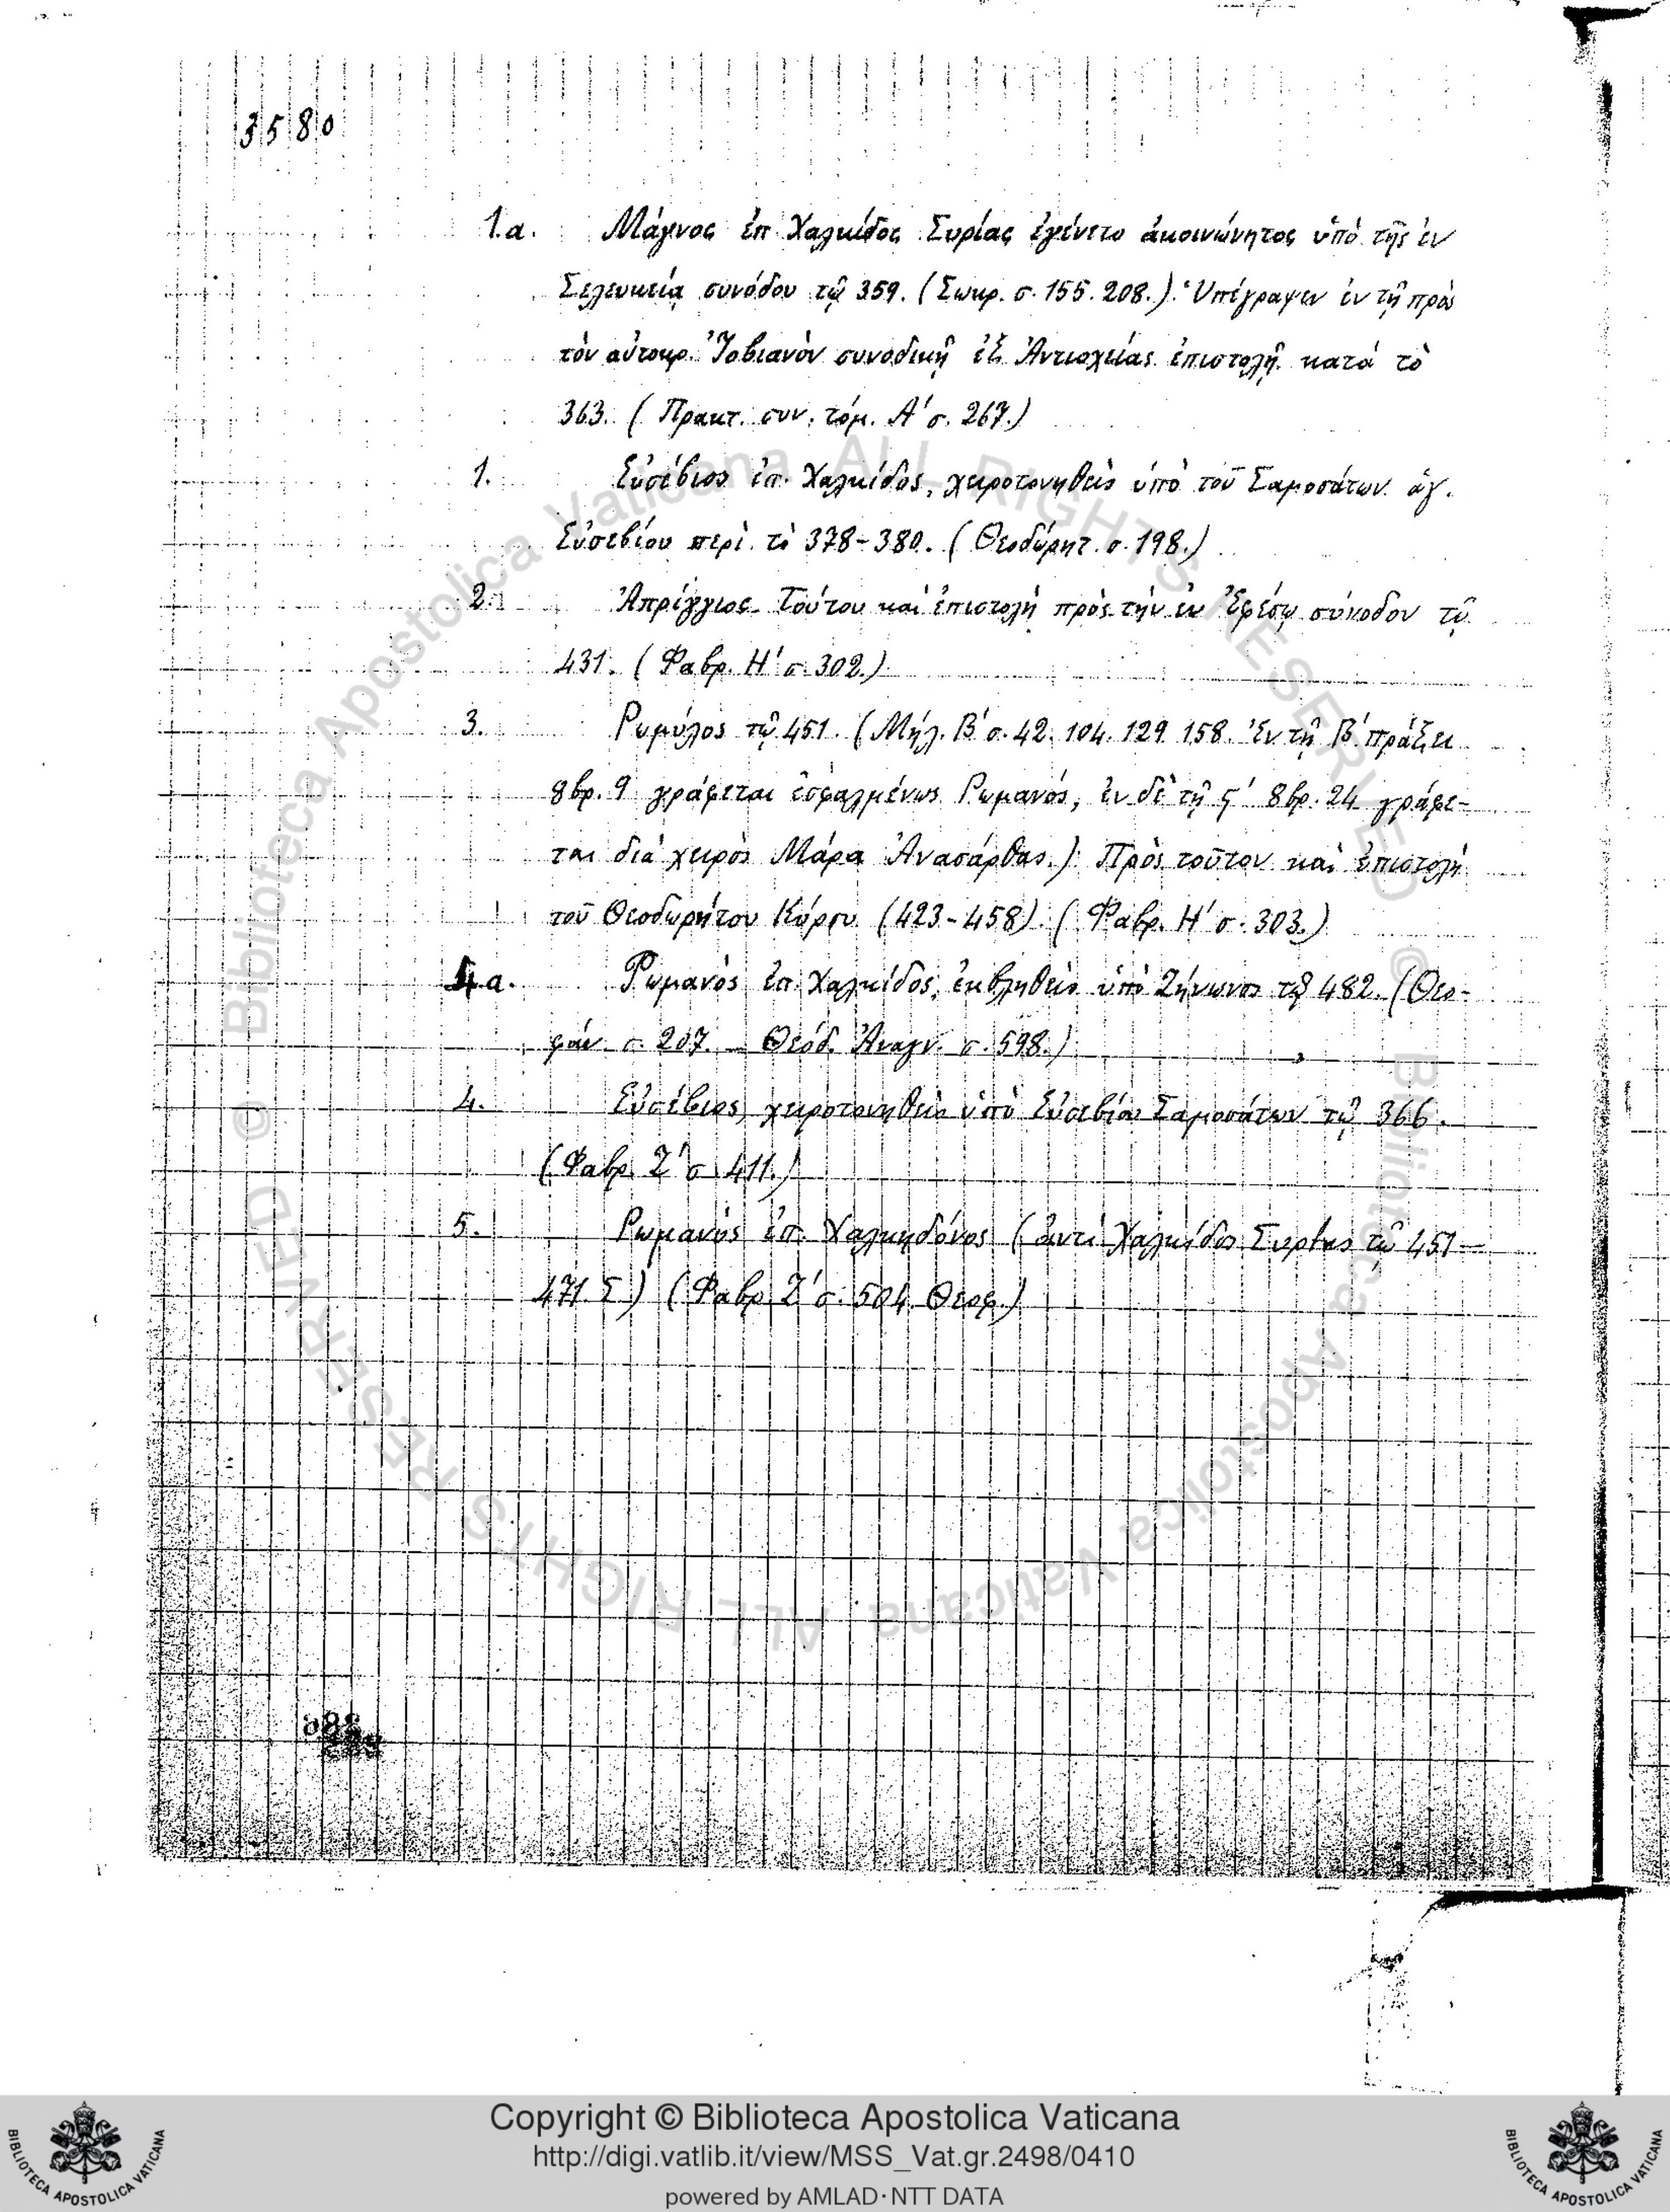 3580
1.α. Μάγνος ἐπ. Χαλκίδος Συρίας ἐγένετο ἀκοινώνητος ὑπὸ τῆς ἐν
Σελευκείᾳ συνόδου τῷ 359. (Σωκρ. σ. 155. 208.) Ὑπέγραψεν ἐν τῇ πρὸς
τὸν αὐτοκρ. Ἰοβιανὸν συνοδικῇ ἐξ Ἀντιοχείας ἐπιστολῇ κατὰ τὸ
363. (Πρακτ. συν. τόμ. Α' σ. 267.)
1. Εὐσέβιος ἐπ. Χαλκίδος, χειροτονηθεὶς ὑπὸ τοῦ Σαμοσάτων ἁγ.
Εὐσεβίου περὶ τὸ 378-380. (Θεοδώρητ. σ. 198.)
2. Ἀπρίγγιος. Τούτου καὶ ἐπιστολὴ πρὸς τὴν ἐν Ἐφέσῳ σύνοδον τῷ
431. (Φαβρ. Η' σ. 302.)
3. Ρωμύλος τῷ 451. (Μήλ. Β' σ. 42. 104. 129 158. Ἐν τῇ Β' πράξει
8βρ. 9 γράφεται ἐσφαλμένως Ρωμανός, ἐν δὲ τῇ ϛ' 8βρ. 24 γράφε-
ται διὰ χειρὸς Μάρα Ἀνασάρθας.) Πρὸς τοῦτον καὶ ἐπιστολὴ
τοῦ Θεοδωρήτου Κύρου (423-458). (Φαβρ. Η' σ. 303.)
4.α. Ρωμανὸς ἐπ. Χαλκίδος, ἐκβληθεὶς ὑπὸ Ζήνωνος τῷ 482. (Θεο-
φάν. σ. 207. _ Θεόδ. Ἀναγν. σ. 598.)
4. Εὐσέβιος, χειροτονηθεὶς ὑπὸ Εὐσεβίου Σαμοσάτων τῷ 366.
(Φαβρ. Ζ' σ. 411.)
5. Ρωμανὸς ἐπ. Χαλκηδόνος (ἀντὶ Χαλκίδος Συρίας τῷ 451-
471. Σ) (Φαβρ. Ζ' σ. 504. Θεοφ.)
© Biblioteca Apostolica Vaticana ALL RIGHTS RESERVED
© Biblioteca Apostolica Vaticana ALL RIGHTS RESERVED
Copyright © Biblioteca Apostolica Vaticana
http://digi.vatlib.it/view/MSS_Vat.gr.2498/0410
powered by AMLAD·NTT DATA
BIBLIOTECA APOSTOLICA VATICANA
BIBLIOTECA APOSTOLICA VATICANA